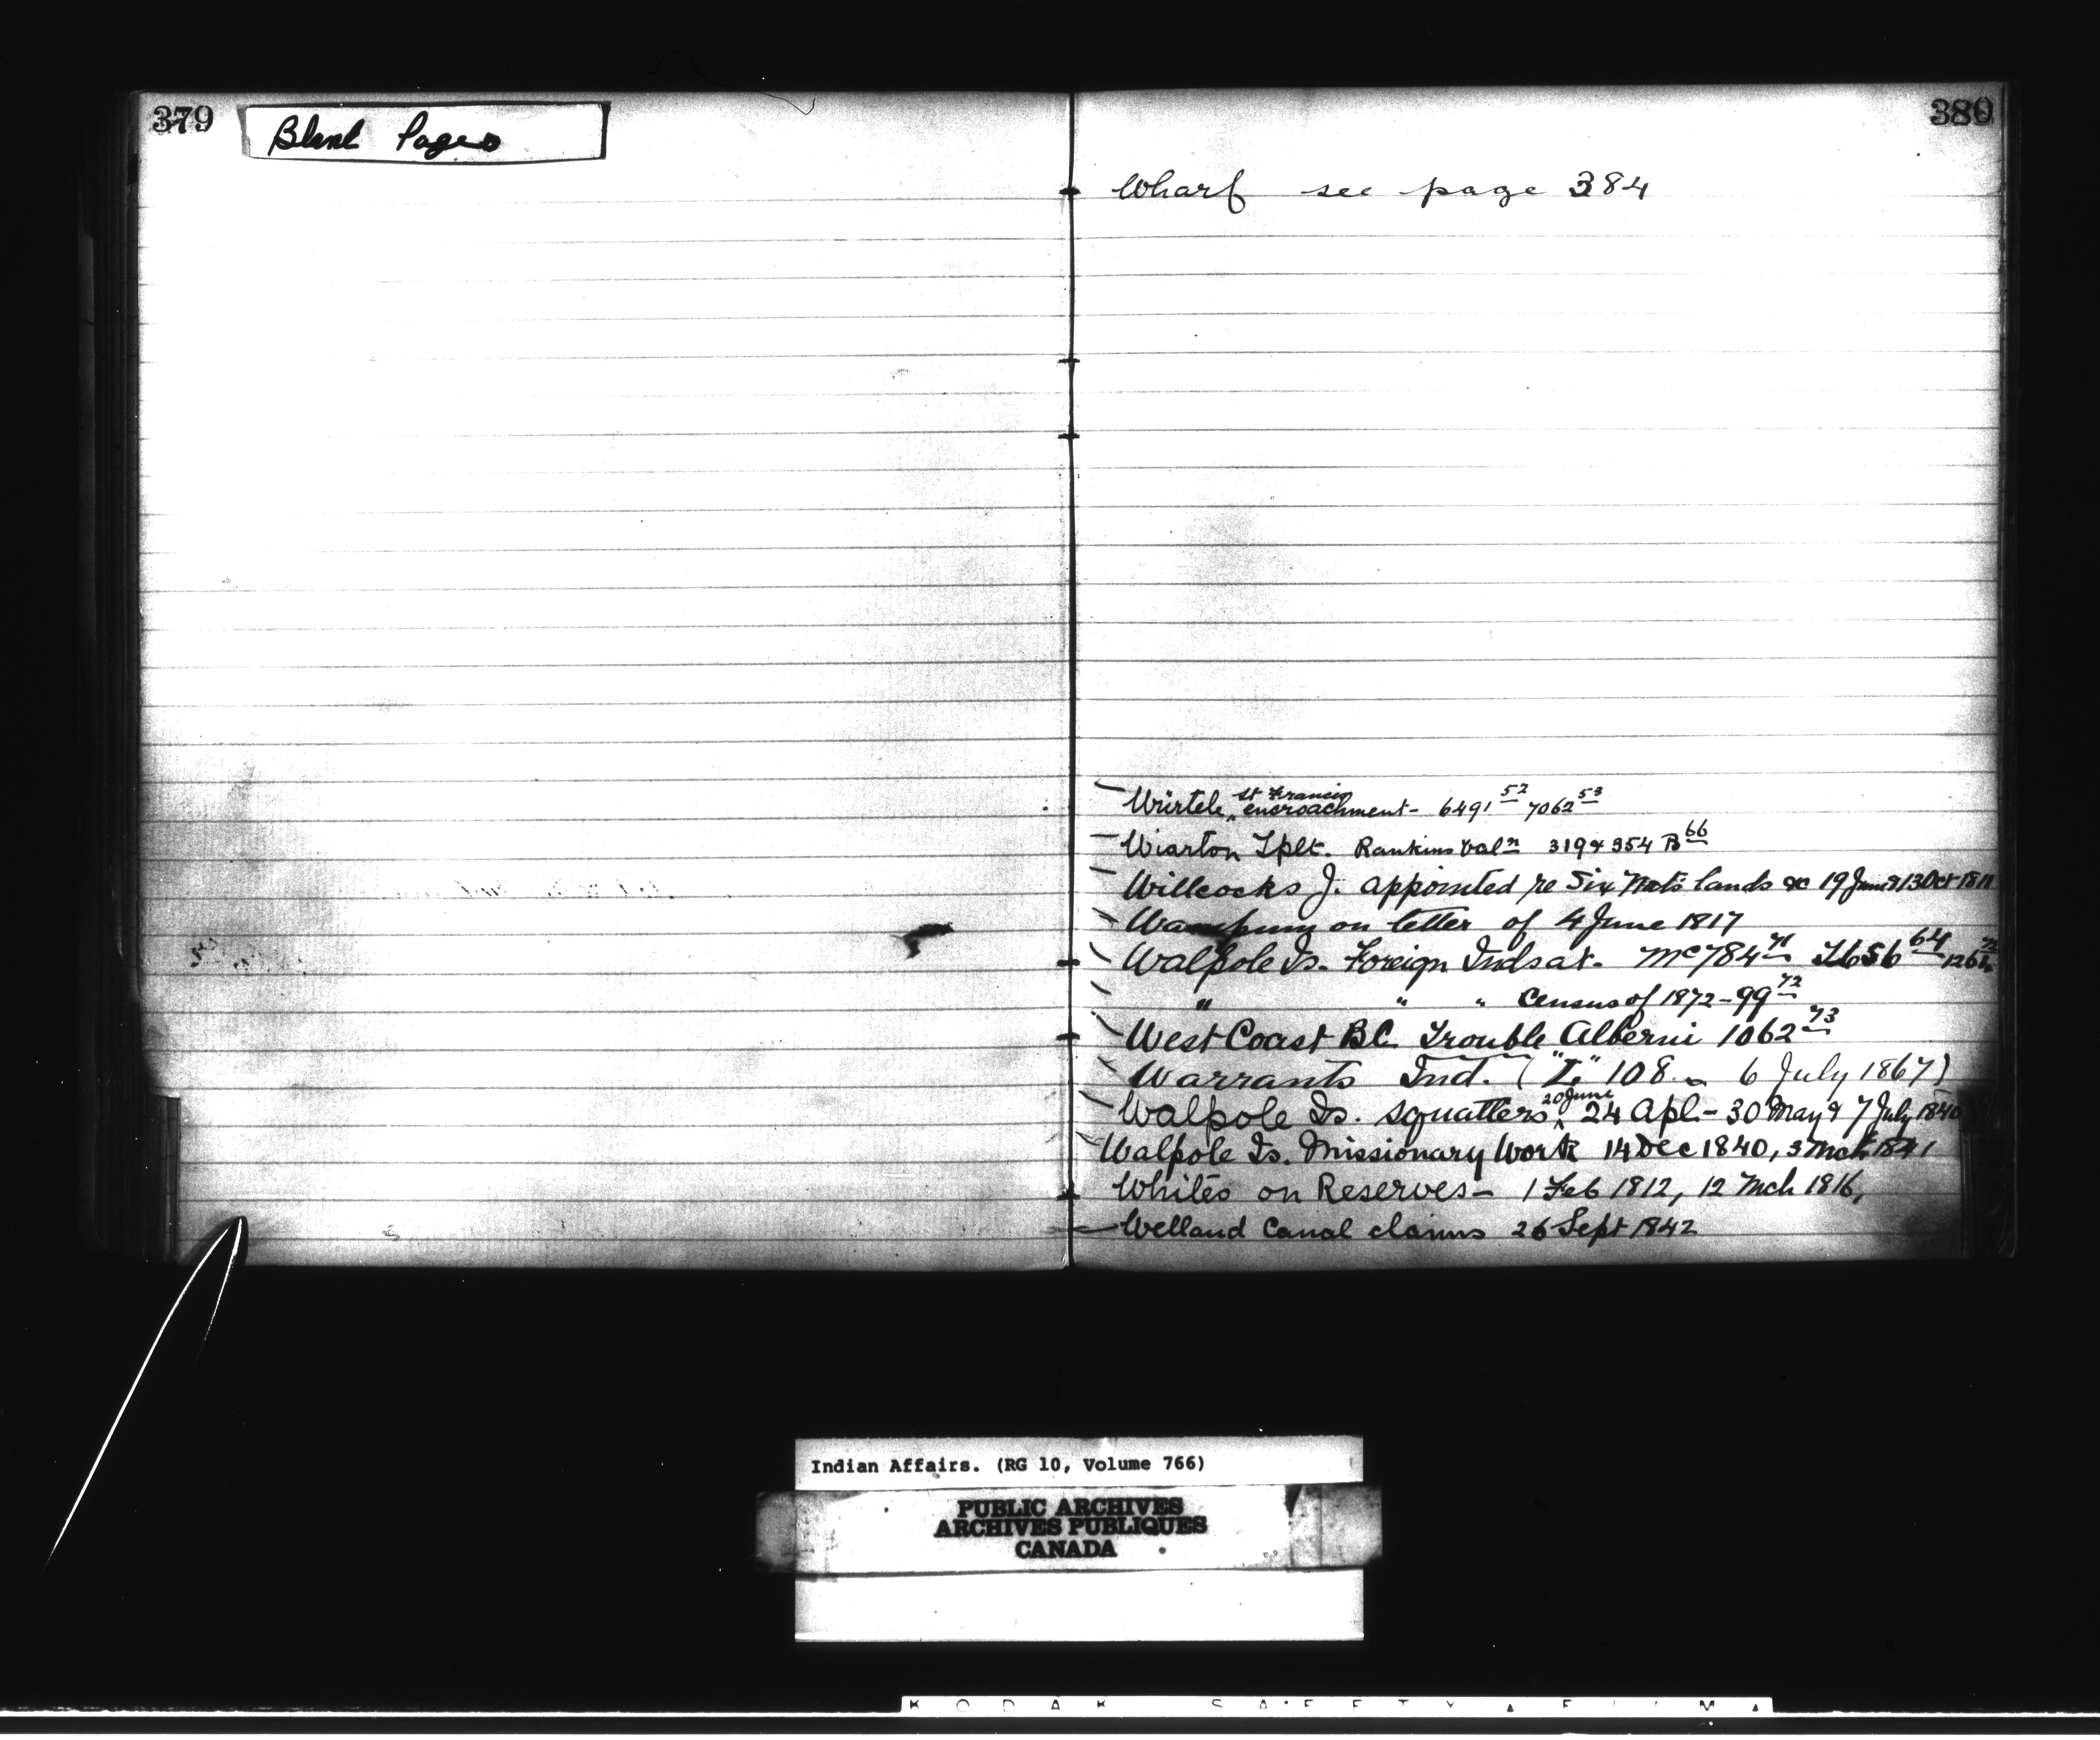 379
Blank Pages
380
Wharf see page 384
Würtele, St Francis encroachment - 6491 52 7062 53
Wiarton Tplt. Rankins Valn 319 & 354 B 66
Willcocks J. appointed re Six Nats lands &c 19 June & 13 Oct 1811
Wampum on letter of 4 June 1817
Walpole Is. Foreign Inds at. Mc784 71 T656 64 126
" " " Census of 1872 - 99 72
West Coast B.C. Trouble Alberni 1062 73
Warrants Ind. ("I" 108 - 6 July 1867)
Walpole Is. squatters 20 June 24 Apl - 30 May & 7 July 1840
Walpole Is. Missionary Work 14 Dec 1840, 3 Mch 1841
Whites on Reserves - 1 Feb 1812, 12 Mch 1816,
Welland Canal claims 26 Sept 1842
Indian Affairs. (RG 10, Volume 766)
PUBLIC ARCHIVES
ARCHIVES PUBLIQUES
CANADA
KODAK SAFETY FILM